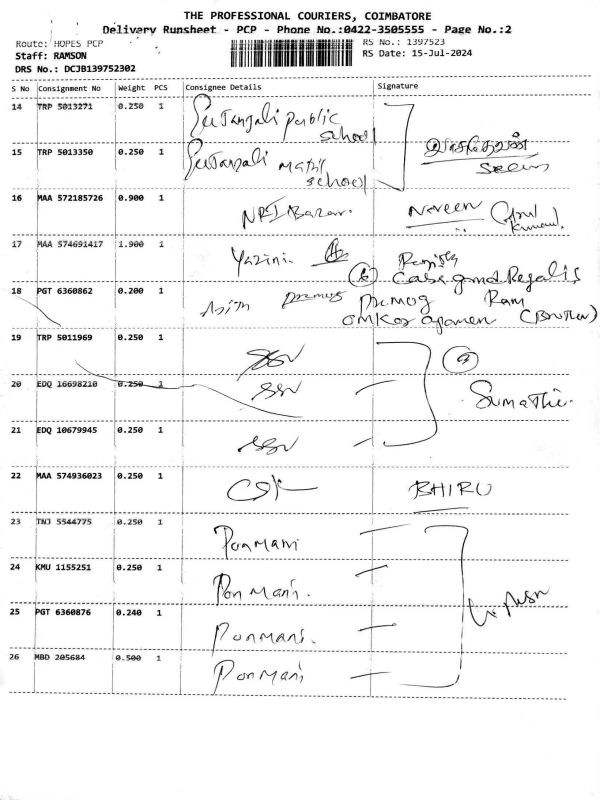 THE PROFESSIONAL COURIERS, COIMBATORE
Delivery Runsheet - PCP - Phone No.:0422-3505555 - Page No.:2
Route: HOPES PCP
RS No.: 1397523
Staff: RAMSON
RS Date: 15-Jul-2024
DRS No.: DCJB139752302
S No Consignment No Weight PCS Consignee Details Signature
14 TRP 5013271 0.250 1 public
school
15 TRP 5013350 0.250 1
school
16 MAA 572185726 0.900 1 NRI Bazar. Naveen
17 MAA 574691417 1.900 1 Yazini
Casa grand Regalis
18 PGT 6360862 0.200 1 Ram
(Brother)
19 TRP 5011969 0.250 1 SSV
20 EDQ 16698210 0.250 1 SSV Sumathi.
21 EDQ 10679945 0.250 1 SSV
22 MAA 574936023 0.250 1 BHIRU
23 TNJ 5544775 0.250 1 Ponmani
24 KMU 1155251 0.250 1 Ponmani.
25 PGT 6360876 0.240 1 Ponmani.
26 MBD 205684 0.500 1 Ponmani